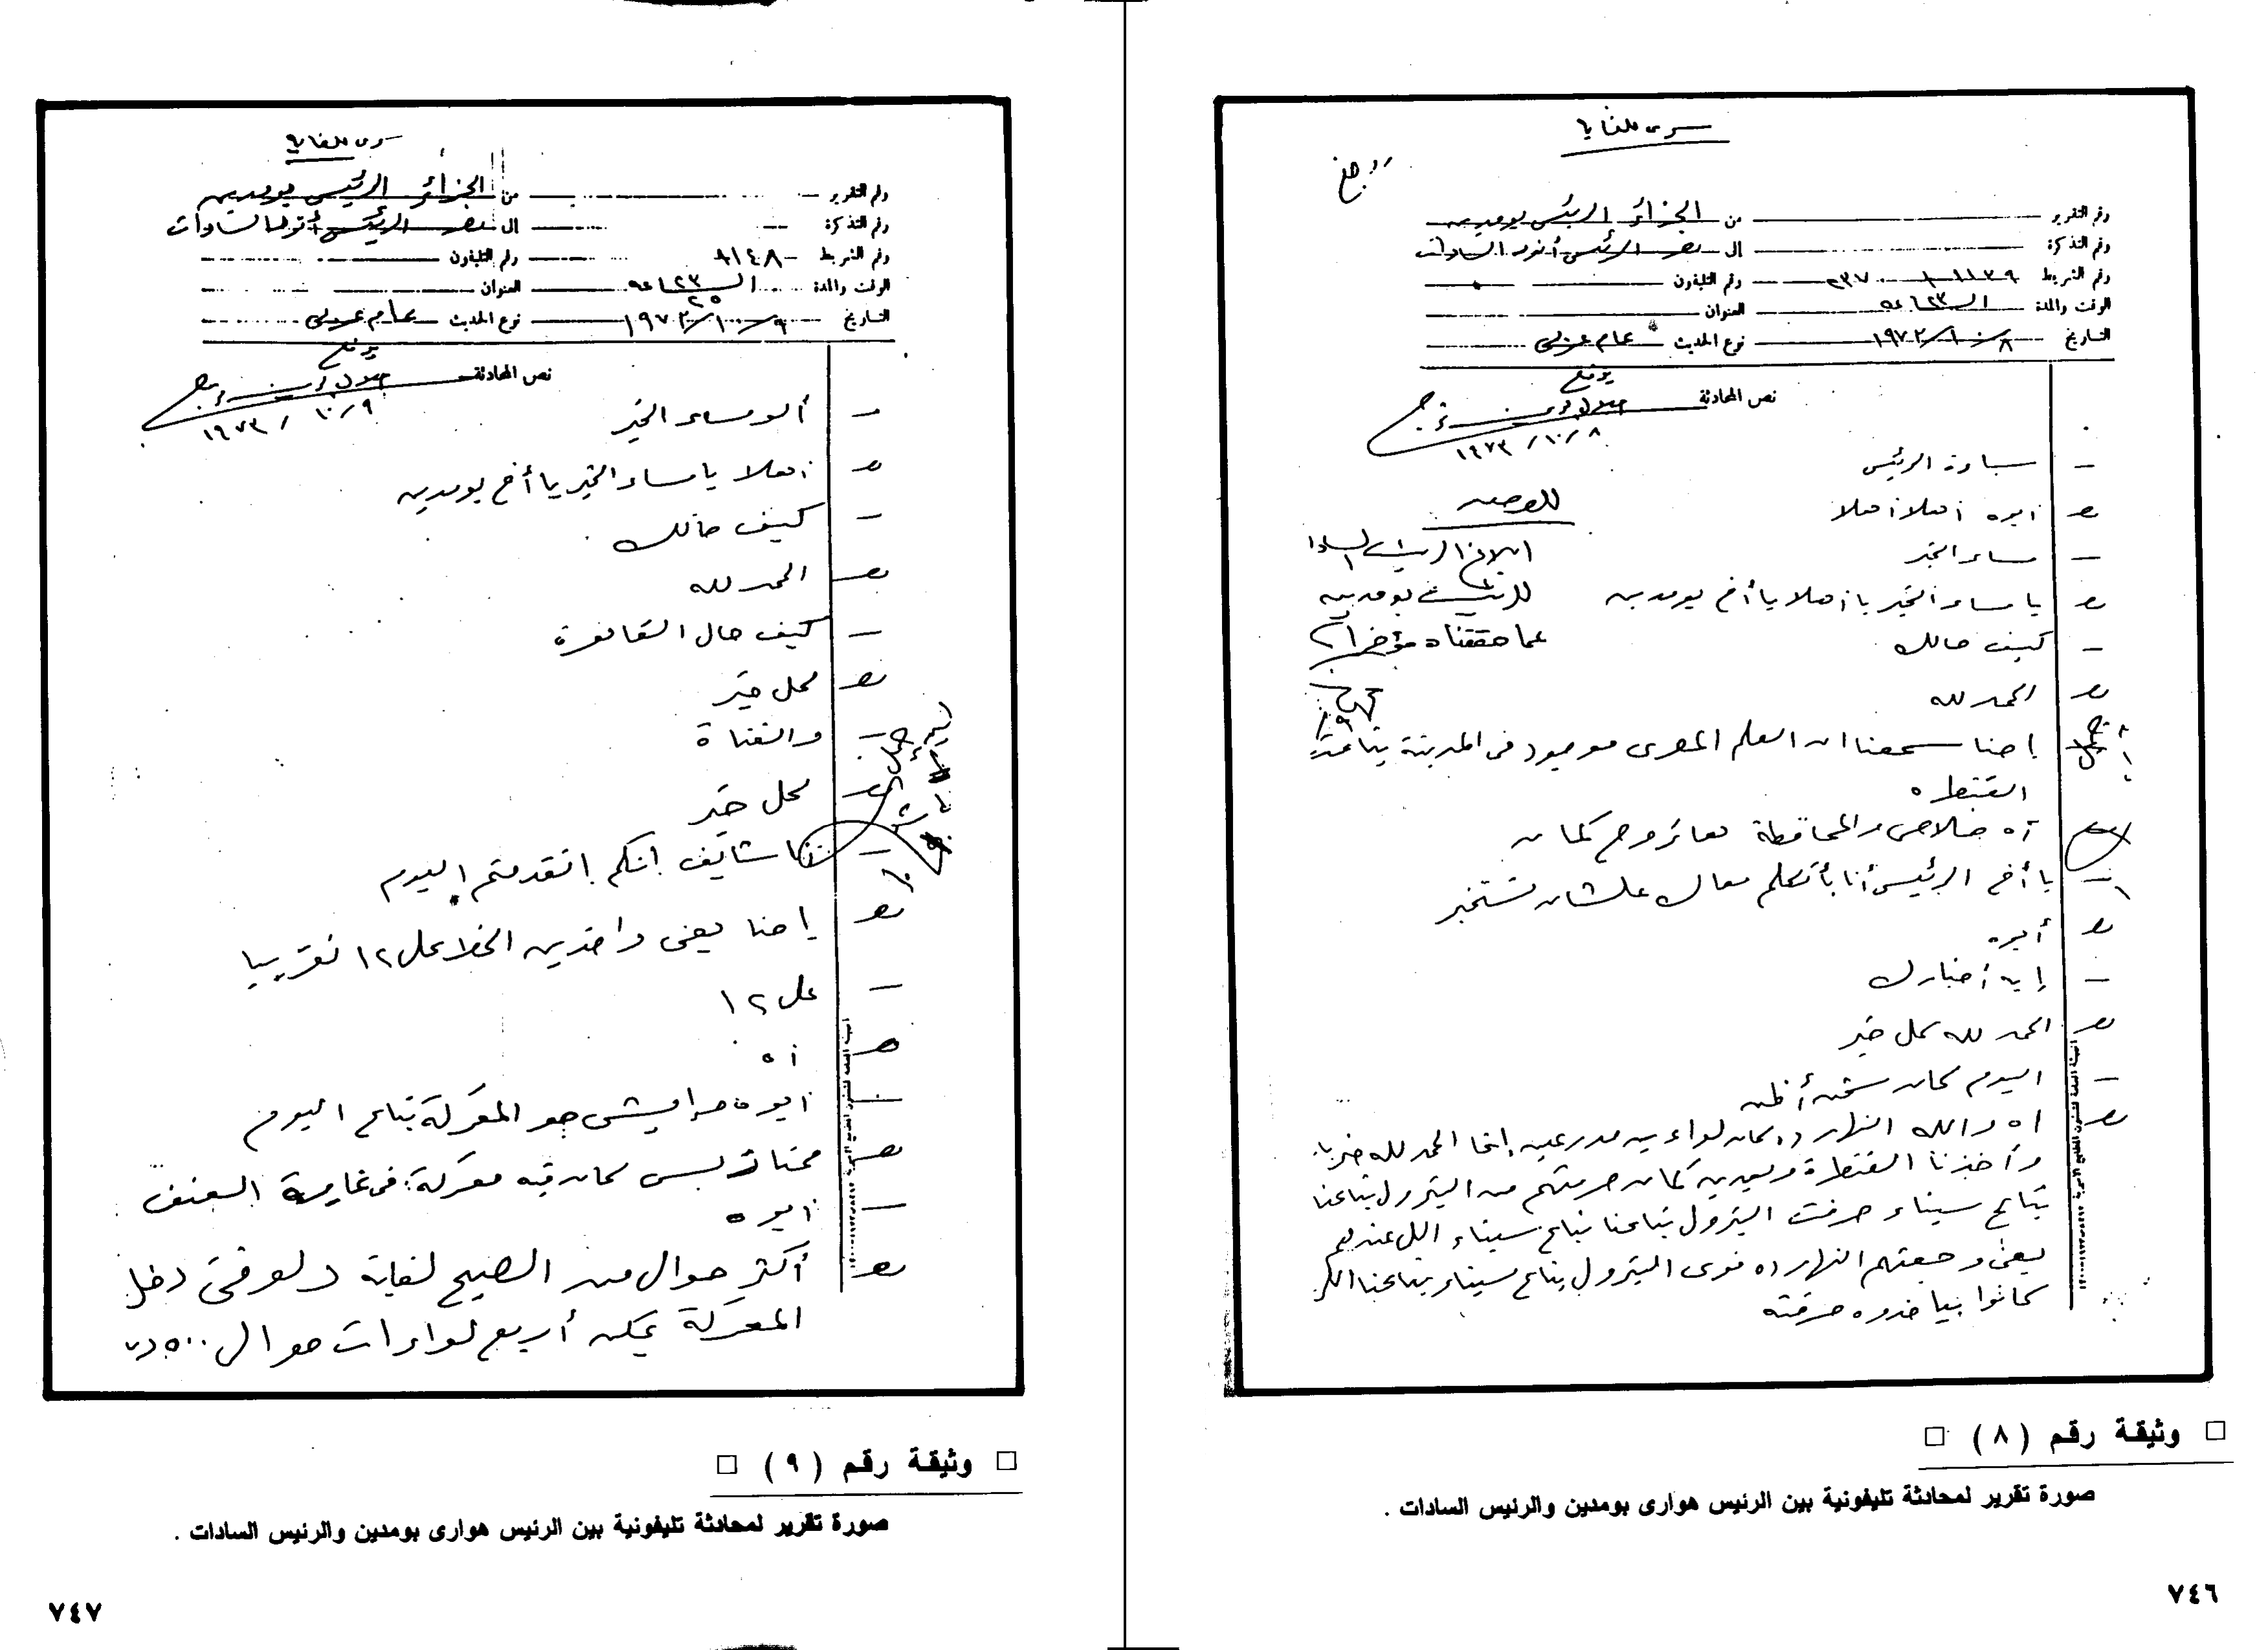 سرى للغاية
رقم التقرير من الجزائر الرئيس بومدين
رقم التذكرة إلى مصر الرئيس أنور السادات
رقم الشريط رقم التليفون
الوقت والمدة العنوان
التاريخ ٨/١٠/١٩٧٣ نوع الحديث عام عربى
نص المحادثة
٨/١٠/١٩٧٣
— سيادة الرئيس
مصر أيوه أهلا أهلا
— مساء الخير
مصر يا مساء الخير يا أهلا يا أخ بومدين
— كيف حالك
مصر الحمد لله
إحنا سمعنا ان العلم المصرى موجود فى المدينة بتاعت
القنطره
آه خلاص والمحافظة كمان
— يا أخ الرئيس أنا بأتكلم معاك علشان نستخبر
مصر أيوه
— إيه أخبارك
مصر الحمد لله كل خير
— اليوم كان سخن أظن
مصر اه والله النهارده كان لواءين مدرعين إنما الحمد لله ضربنا
وأخذنا القنطرة وبعدين كمان حرمتهم من البترول بتاعنا
بتاع سيناء حرقت البترول بتاعنا بتاع سيناء اللى عندهم
يعنى وجعتهم النهارده قوى البترول بتاع سيناء بتاعنا اللى
كانوا بياخدوه حرقته
للعرض
الرئيس السادات
للرئيس بومدين
عما حققناه مؤخرا
□ وثيقة رقم ( ٨ ) □
صورة تقرير لمحادثة تليفونية بين الرئيس هوارى بومدين والرئيس السادات .
٧٤٦
سرى للغاية
رقم التقرير من الجزائر الرئيس بومدين
رقم التذكرة إلى مصر الرئيس أنور السادات
رقم الشريط ٨١٤٨ رقم التليفون
الوقت والمدة العنوان
التاريخ ٩/١٠/١٩٧٣ نوع الحديث عام عربى
نص المحادثة
٩/١٠/١٩٧٣
— ألو مساء الخير
مصر أهلا يا مساء الخير يا أخ بومدين
— كيف حالك
مصر الحمد لله
— كيف حال القاهرة
مصر كل خير
— والقناة
مصر كل خير
— أنا شايف انكم اتقدمتم اليوم
مصر إحنا يعنى واخدين الخط على ١٢ تقريبا
— على ١٢
مصر آه
— أيوه هو المعركة بتاع اليوم
مصر بس كان فيه معركة فى غاية العنف
— أيوه
مصر أكثر حوالى من الصبح لغاية دلوقتى دخل
المعركة يمكن أربع لواءات حوالى ٥٠٠
□ وثيقة رقم ( ٩ ) □
صورة تقرير لمحادثة تليفونية بين الرئيس هوارى بومدين والرئيس السادات .
٧٤٧